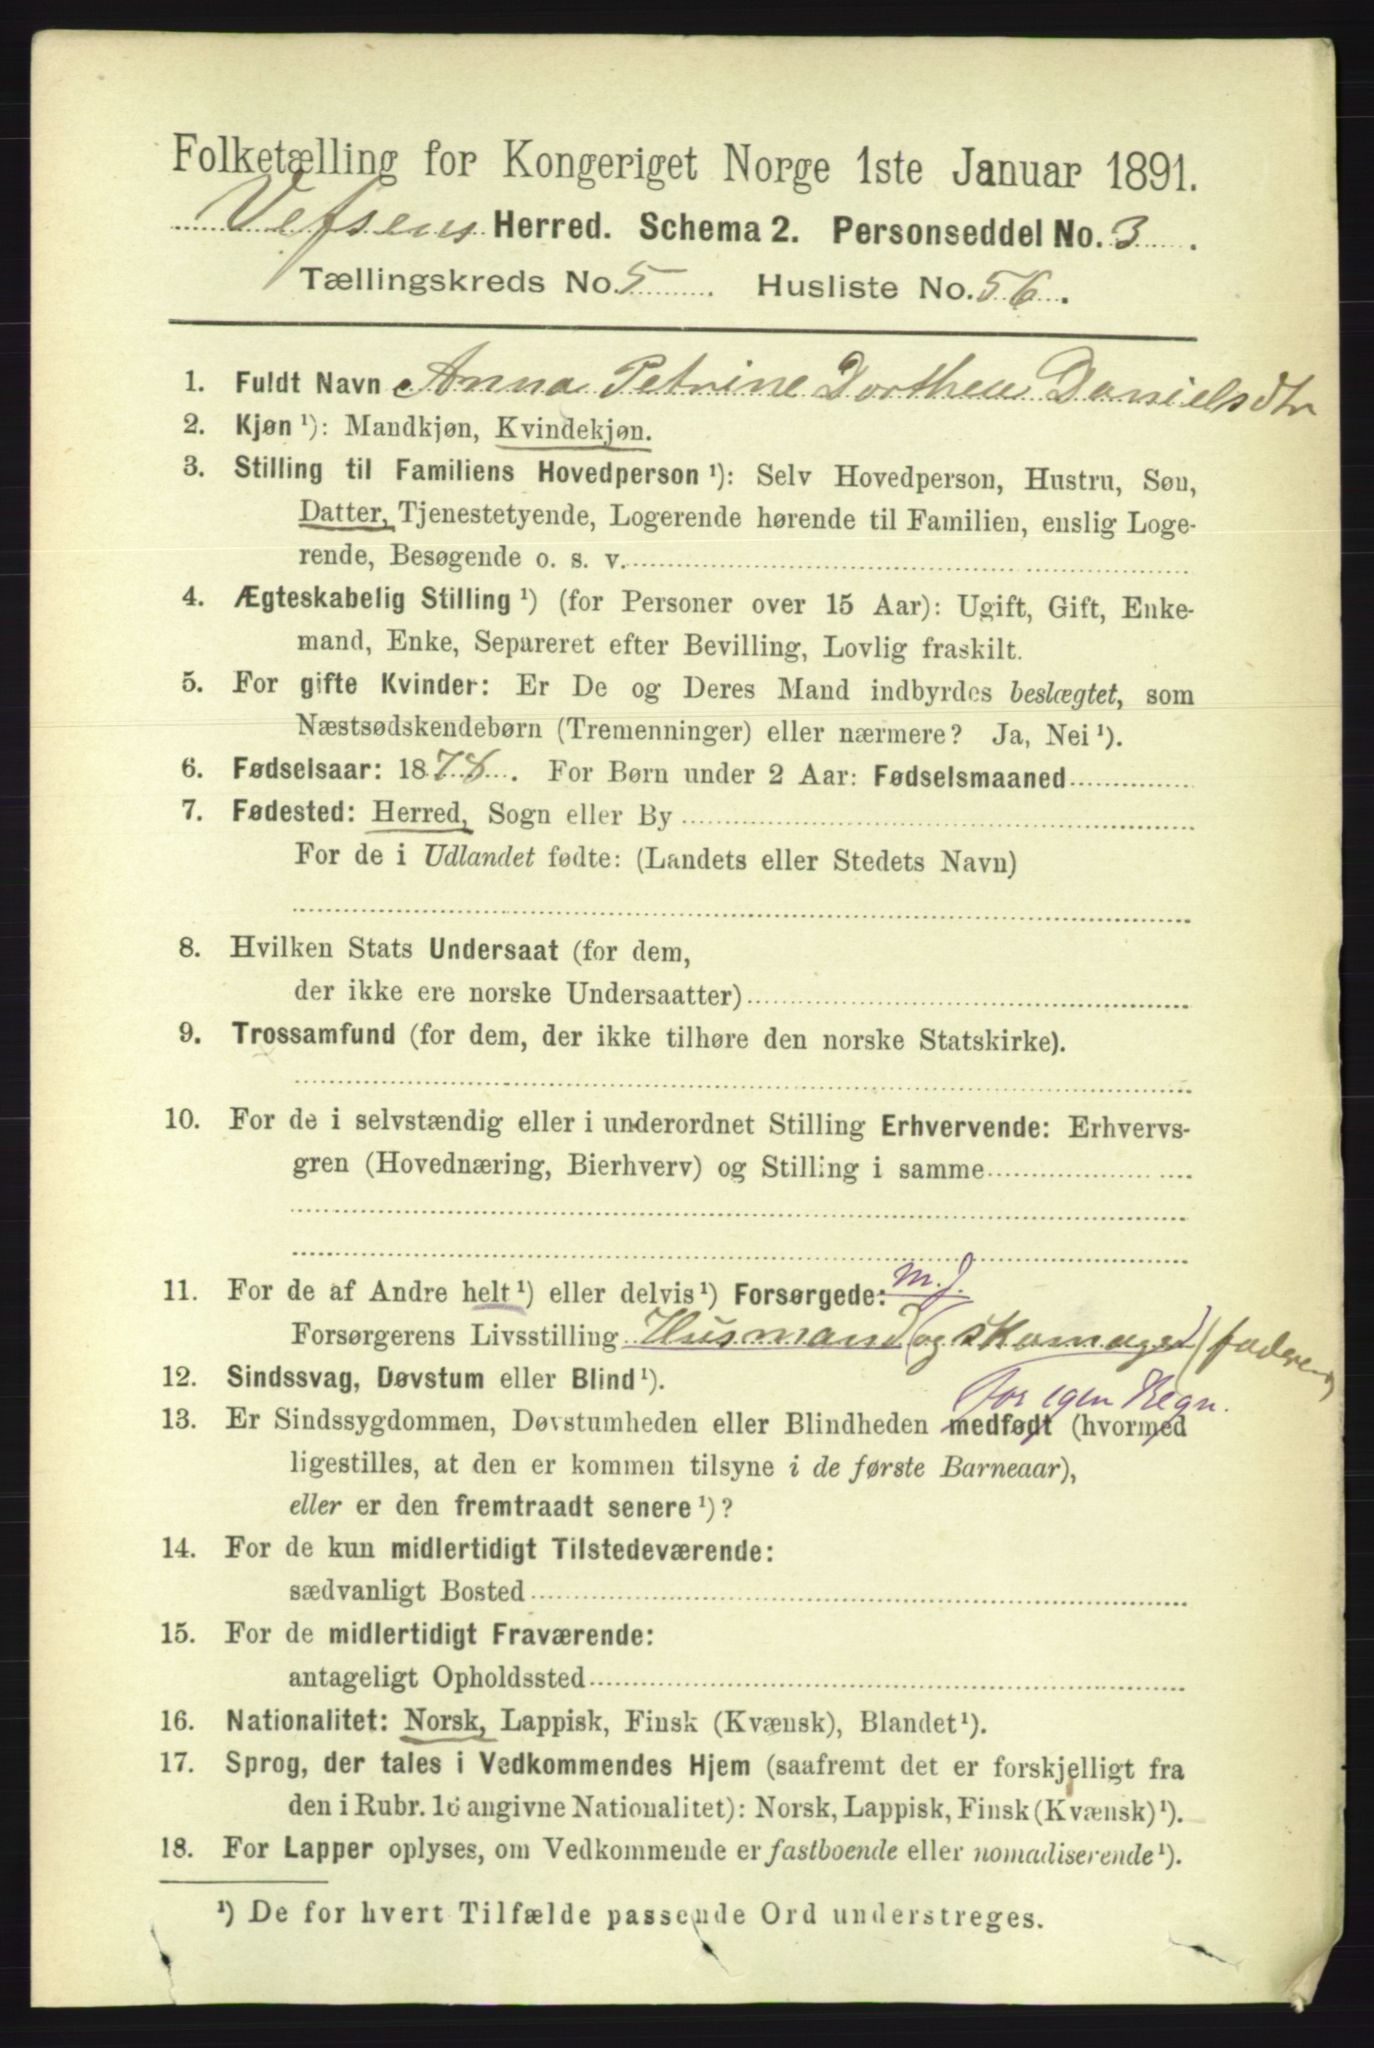 Folketælling for Kongeriget Norge 1ste Januar 1891.
Vefsens Herred. Schema 2. Personseddel No. 3.
Tællingskreds No. 5. Husliste No. 56.
1. Fuldt Navn Anna Petrine Dorthea Danielsdtr
2. Kjøn ¹): Mandkjøn, Kvindekjøn.
3. Stilling til Familiens Hovedperson ¹): Selv Hovedperson, Hustru, Søn,
Datter, Tjenestetyende, Logerende hørende til Familien, enslig Loge-
rende, Besøgende o. s. v.
4. Ægteskabelig Stilling ¹) (for Personer over 15 Aar): Ugift, Gift, Enke-
mand, Enke, Separeret efter Bevilling, Lovlig fraskilt.
5. For gifte Kvinder: Er De og Deres Mand indbyrdes beslægtet, som
Næstsødskendebørn (Tremenninger) eller nærmere? Ja, Nei ¹).
6. Fødselsaar: 1878. For Børn under 2 Aar: Fødselsmaaned
7. Fødested: Herred, Sogn eller By
For de i Udlandet fødte: (Landets eller Stedets Navn)
8. Hvilken Stats Undersaat (for dem,
der ikke ere norske Undersaatter)
9. Trossamfund (for dem, der ikke tilhøre den norske Statskirke).
10. For de i selvstændig eller i underordnet Stilling Erhvervende: Erhvervs-
gren (Hovednæring, Bierhverv) og Stilling i samme
m.J.
11. For de af Andre helt ¹) eller delvis ¹) Forsørgede:
Forsørgerens Livsstilling Husmand (og skomager) (faderen)
12. Sindssvag, Døvstum eller Blind ¹).
for egen Regn.
13. Er Sindssygdommen, Døvstumheden eller Blindheden medfødt (hvormed
ligestilles, at den er kommen tilsyne i de første Barneaar),
eller er den fremtraadt senere ¹)?
14. For de kun midlertidigt Tilstedeværende:
sædvanligt Bosted
15. For de midlertidigt Fraværende:
antageligt Opholdssted
16. Nationalitet: Norsk, Lappisk, Finsk (Kvænsk), Blandet ¹).
17. Sprog, der tales i Vedkommendes Hjem (saafremt det er forskjelligt fra
den i Rubr. 16 angivne Nationalitet): Norsk, Lappisk, Finsk (Kvænsk) ¹).
18. For Lapper oplyses, om Vedkommende er fastboende eller nomadiserende ¹).
¹) De for hvert Tilfælde passende Ord understreges.